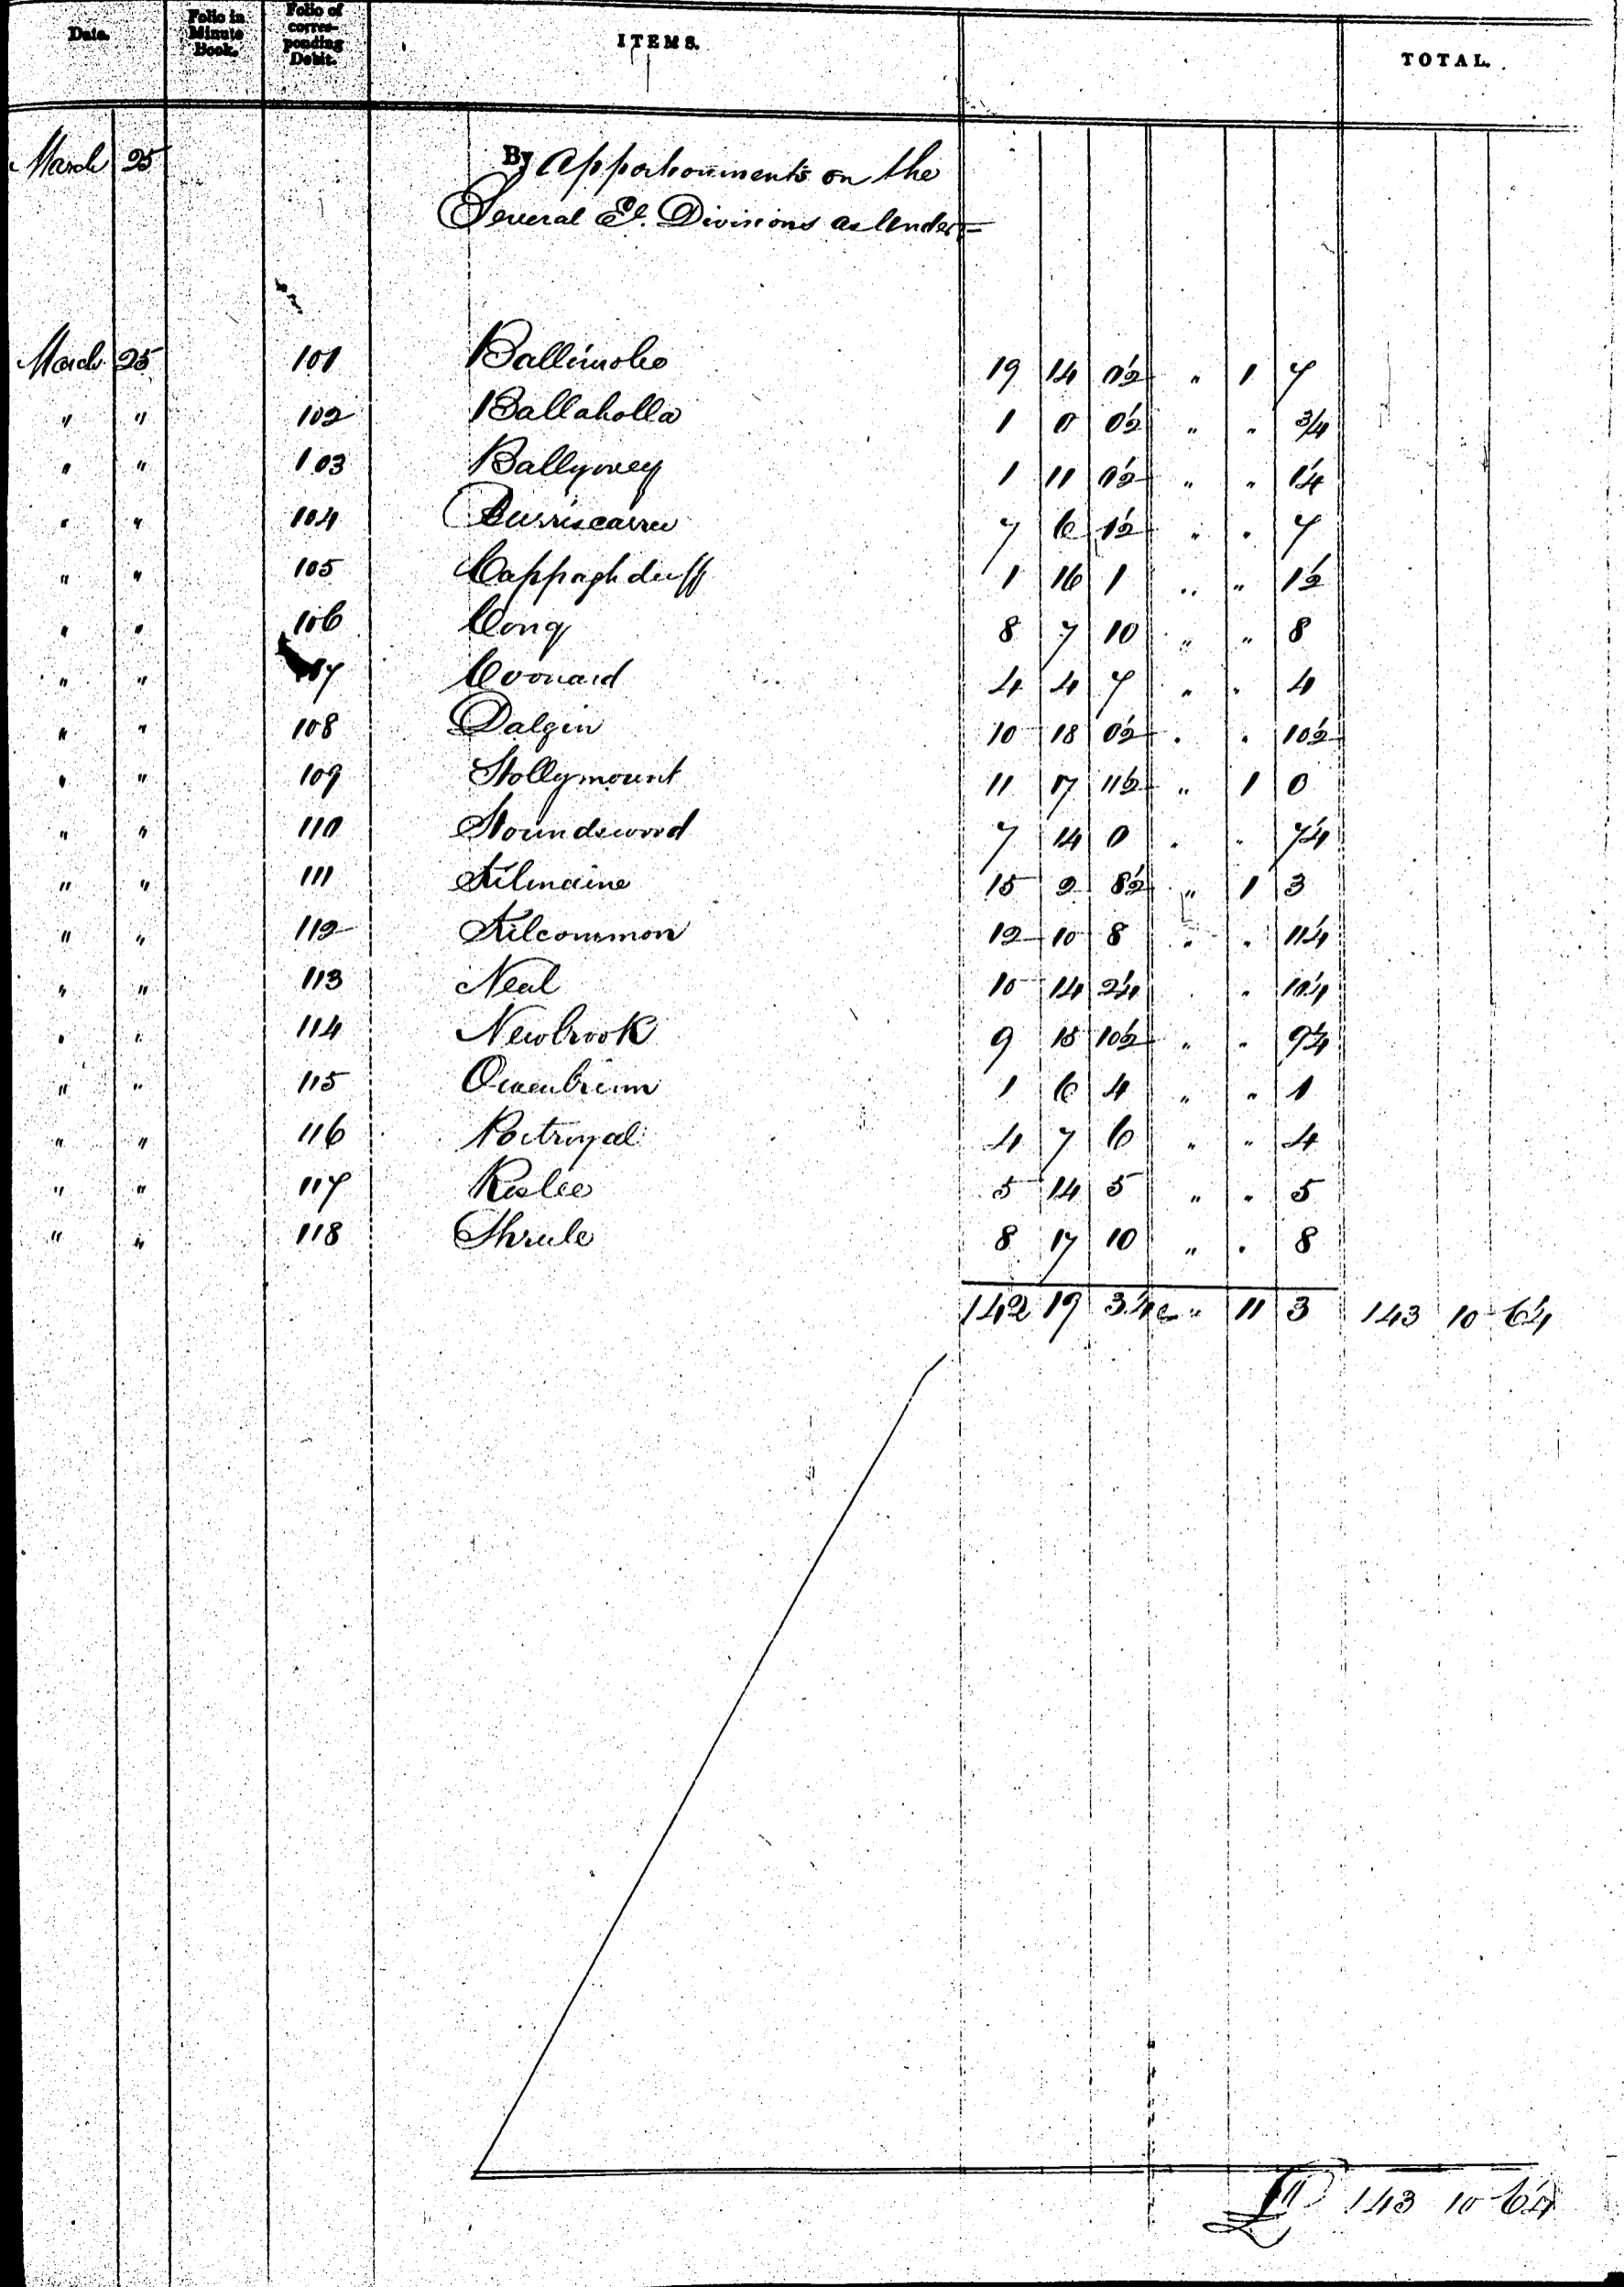 Date. Folio in Minute Book. Folio of corres-ponding Debit. ITEMS. TOTAL.
March 25 By Apportionments on the
Several El. Divisions as Under =
March 25 101 Ballinrobe 19 14 0½ " 1 7
" " 102 Ballaholla 1 0 0½ " " ¾
" " 103 Ballyovey 1 11 0½ " " 1¼
" " 104 Burriscarra 7 6 1½ " " 7
" " 105 Cappaghduff 1 16 1 " " 1½
" " 106 Cong 8 7 10 " " 8
" " 107 Coonard 4 4 7 " " 4
" " 108 Dalgin 10 18 0½ " " 10½
" " 109 Hollymount 11 17 11½ " 1 0
" " 110 Houndswood 7 14 0 " " 7¼
" " 111 Kilmaine 15 2 8½ " 1 3
" " 112 Kilcommon 12 10 8 " " 11¼
" " 113 Neal 10 14 2¼ " " 10¼
" " 114 Newbrook 9 15 10½ " " 9¼
" " 115 Owenbrinn 1 6 4 " " 1
" " 116 Portroyal 4 7 6 " " 4
" " 117 Roslee 5 14 5 " " 5
" " 118 Shrule 8 17 10 " " 8
142 19 3¼ " 11 3 143 10 6¼
£ 143 10 6¼